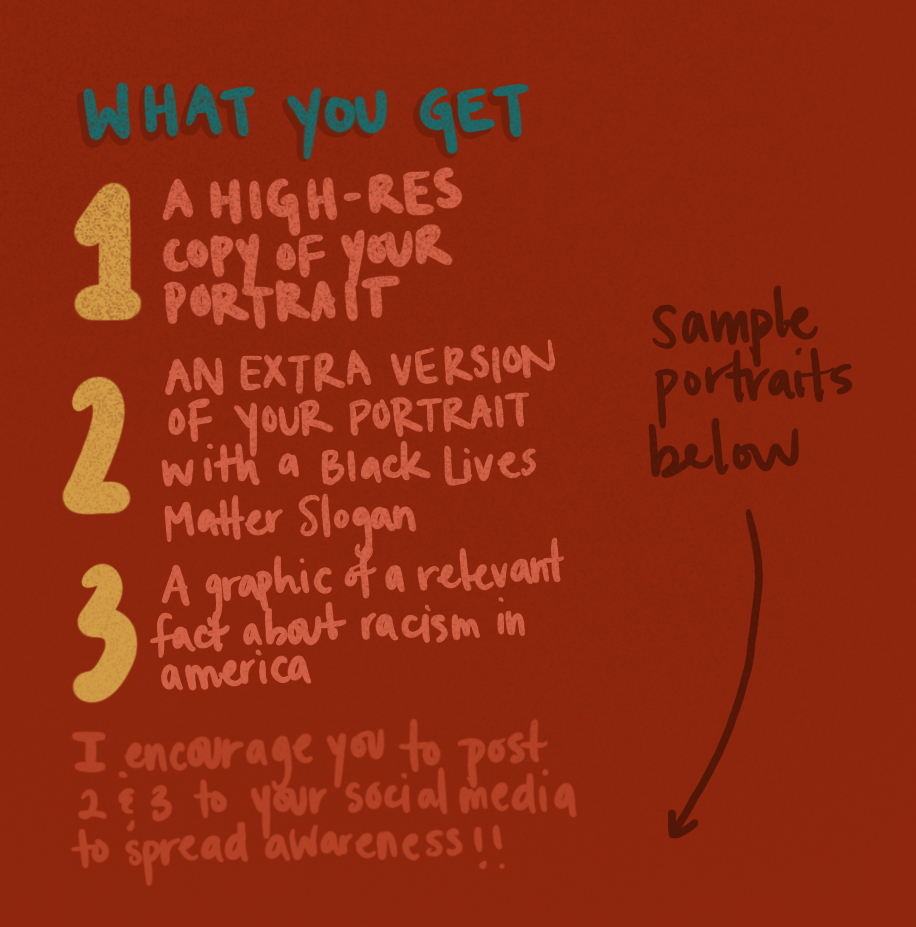 WHAT YOU GET
1
A HIGH-RES
COPY OF YOUR
PORTRAIT
2
AN EXTRA VERSION
OF YOUR PORTRAIT
with a Black Lives
Matter Slogan
3
A graphic of a relevant
fact about racism in
america
I encourage you to post
2 & 3 to your social media
to spread awareness!!
Sample
portraits
below